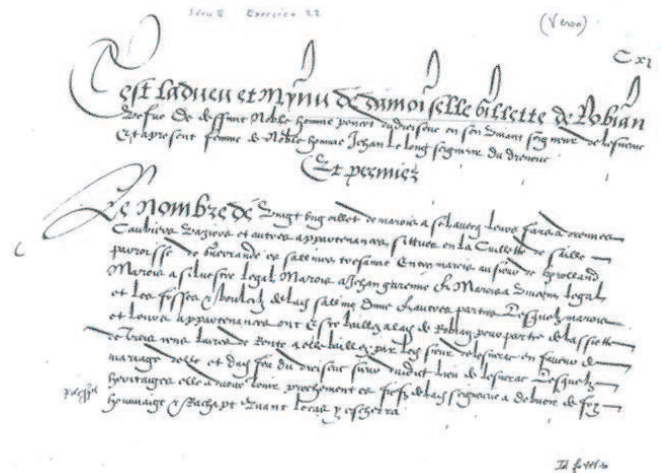 Série 8 Exercice 22
(Verso)
C XI
Cest ladveu et mynu de damoiselle Gillette de Robian
vefve de deffunt Noble homme poncet du dreseuc en son vivant seigneur de lesnerac
Et a present femme de Noble homme Jehan le long seigneur du dreneuc
Et premier
Le nombre de vingt huyt oeillet de marois a sel avecq leurs fares adernes
Caubiers vazieres et autres appartenances sittuez en la Cuillette de saille
parroisse de Guerrande es sallines tresaine Entre marois au sieur de
Marois a silvestre legal Marois a Jehan Marois a legal
et Les fosses &amp; de lad salline dune &amp; autres parties Desquelz marois
et leurs appartenances ont Este baillez a lad de Robian pour partie de lassiette
de Troys cens livres de Rente a elle baillez par led sieur de lesnerac en faveur de
mariage delle et dud feu du dreseuc sieur dudict lieu de lesnerac Desquelz
heritaiges elle advoue tenir prochement es fiefz de lad seigneurie a debvoir de foy
hommaige &amp; Rachapt quant le cas y escherra